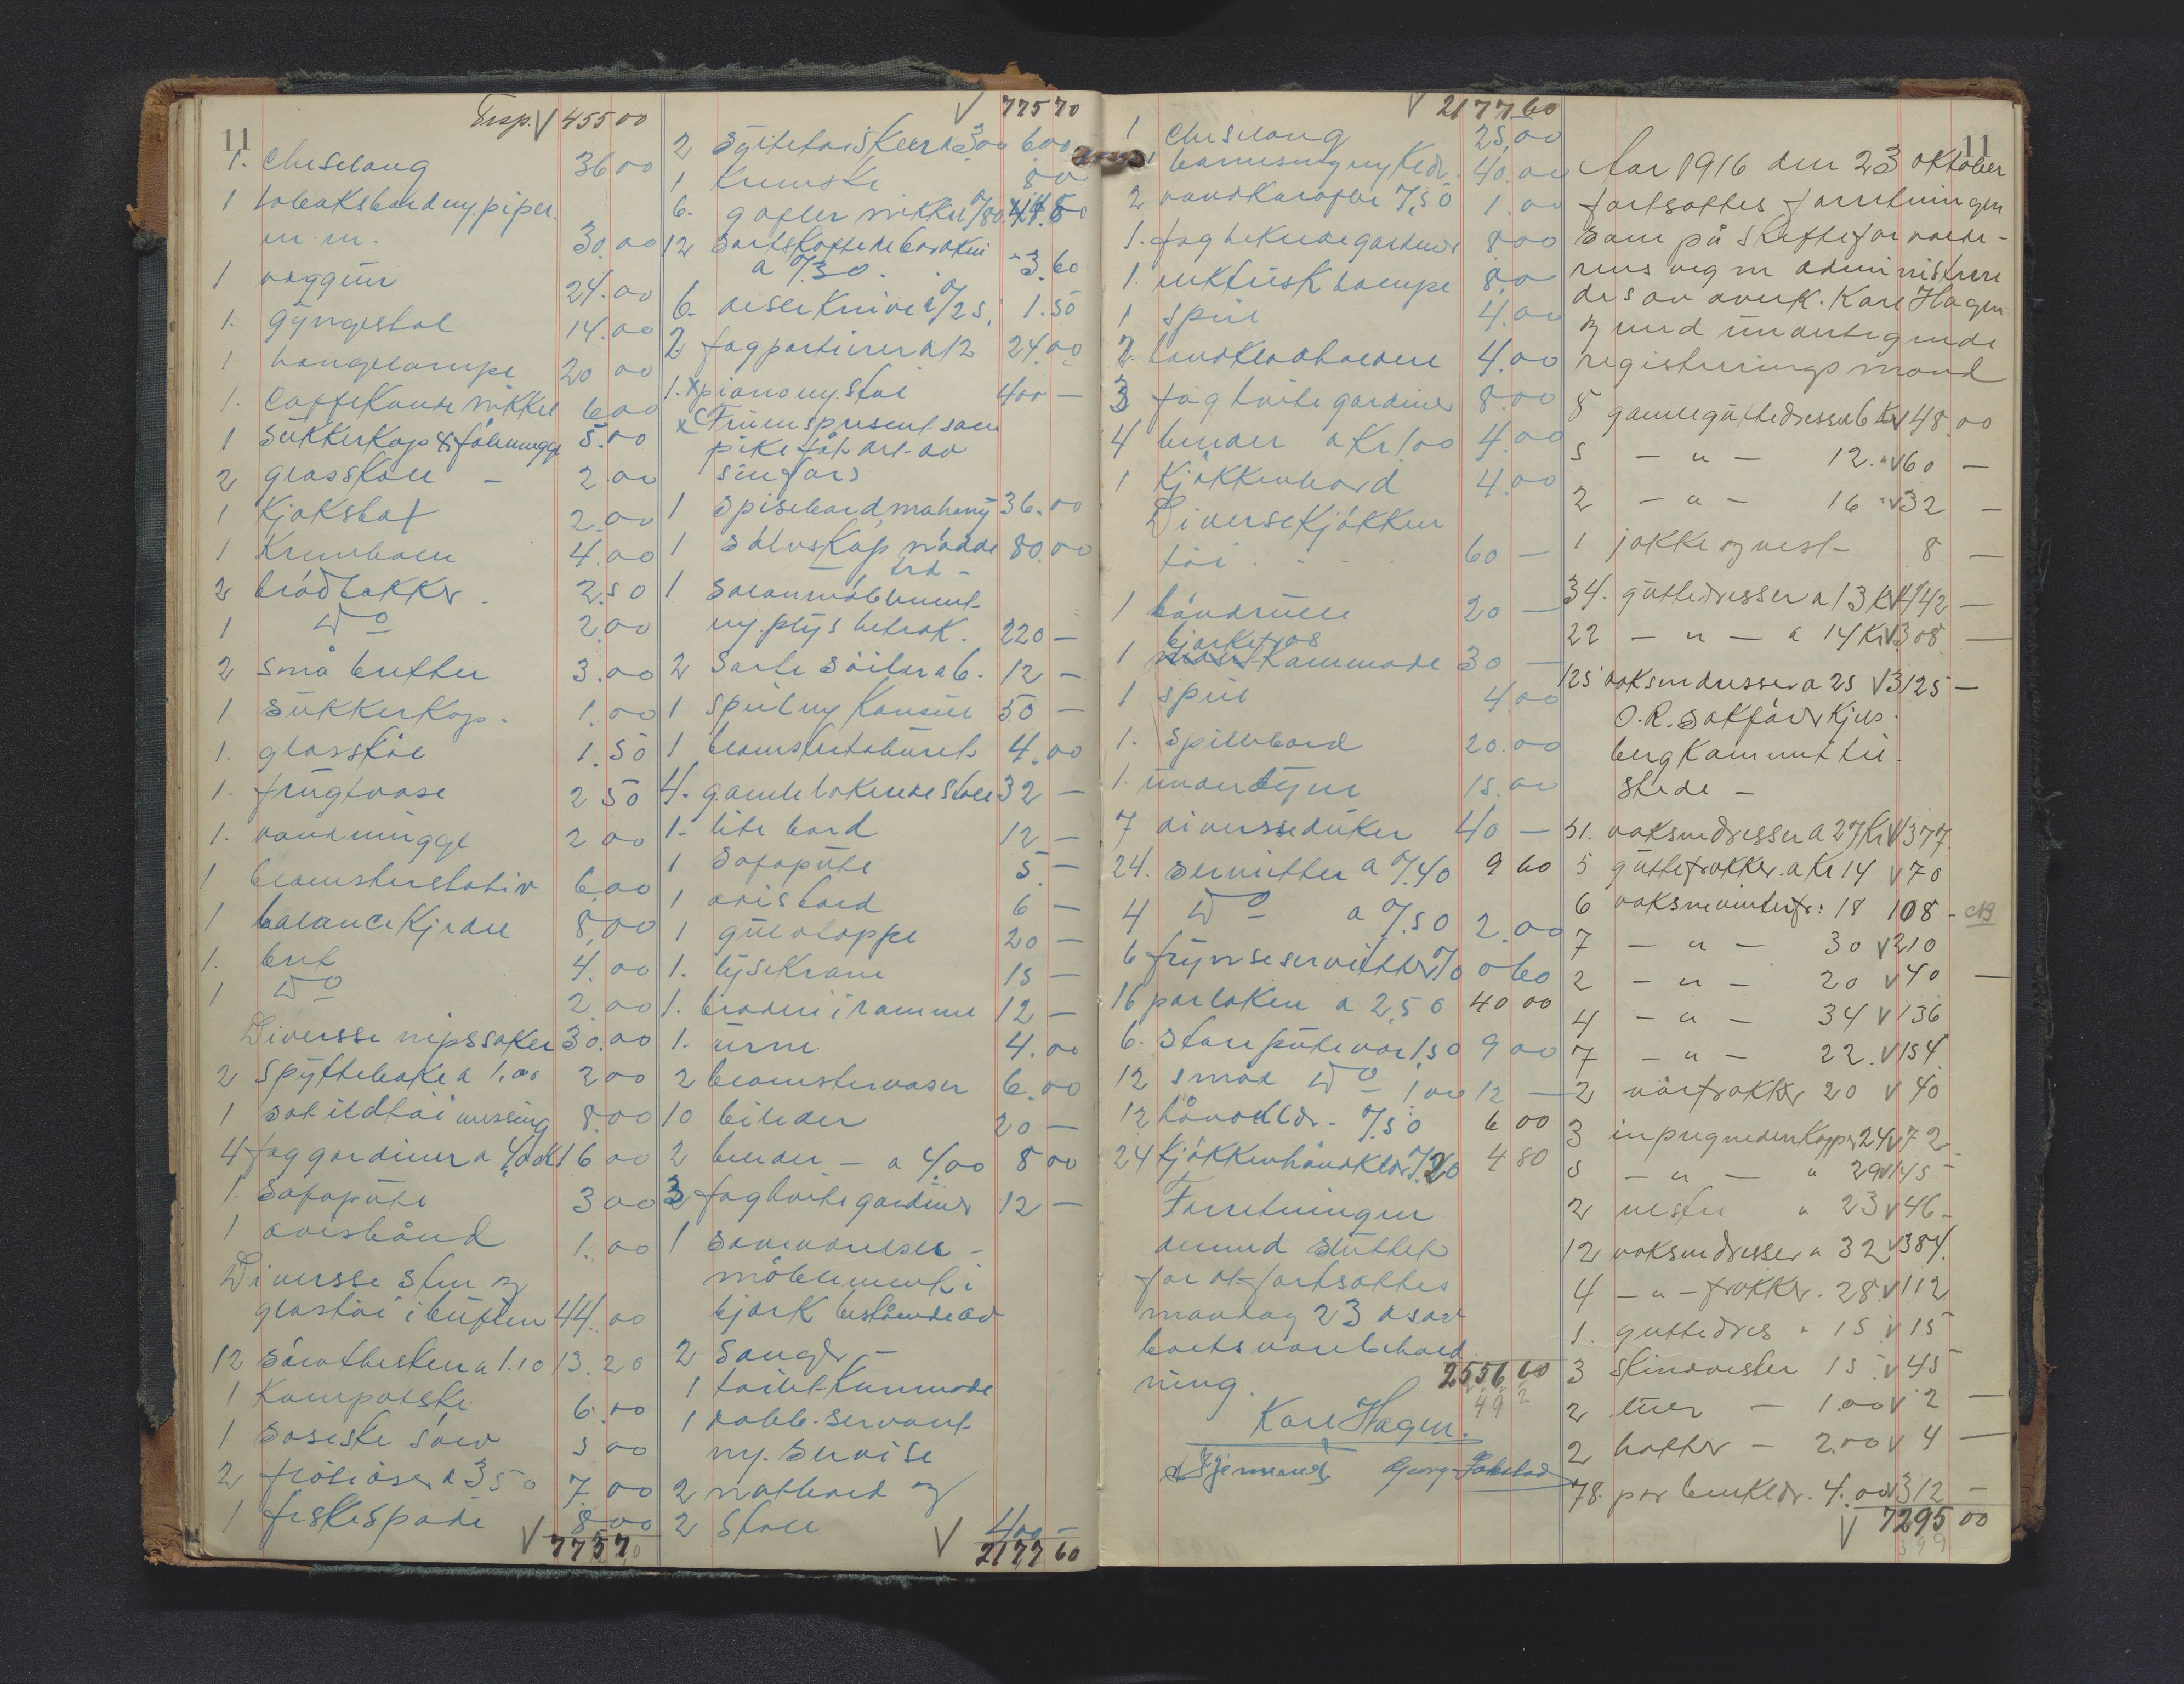 11
Trsp. V 455 00
1. Cheselong 36 00
1 tobaksbord m/ piper
m.m. 30.00
1 væggur 24.00
1. gyngestol 14.00
1 hængelampe 20 00
1. Caffekande nikkel 6 00
1 sukkerkop & flötemugge 5.00
2 glasskåle - 2.00
1 Kjeks
1 4.00
2 brödbakker. 2.50
1 Do 2.00
2 små butter 3.00
1 sukkerkop. 1.00
1. glasskål 1.50
1. frugtvase 2 50
1. vandmugge 2 00
1 blomsterstativ 6.00
1 balance Kjedel 8.00
1. bret 4.00
1 Do 2.00
Diversse nipssaker 30.00
2 spyttebake a 1.00 2 00
1 sæt ildtöi messing 8.00
4 fag gardiner a 4.00 16 00
1. sofapute 3 00
1 avisbånd 1.00
Diversse sten og
glastöi i buffeen 44.00
12 sölvtheskeer a 1.10 13.20
1 Kompotske 6.00
1 soseske sölv 5 00
2 a 3 50 7.00
1 fiskespade 8.00
V 775 70
V 775 70
2 syltetöiskeer a 3.00 6.00
1 8.00
6. gafler nikkel 0/80 4.80
12
a 0/30. 3.60
6. deserknive a 0/25. 1.50
2 fag portierer a 12 24.00
1. x piano m/ stol 400 —
x Fruens presens som
pike fåt
sin far)
1 spisebord mahony 36.00
1 sölvskap 80.00
1 salonmöblement
m/ plys betræk. 220 —
2 sorte söiler a 6. 12 —
1 speil m/ Konsul 50 —
1 blomstertaburet 4.00
4. gamle lakerede stole 32 —
1. lite bord 12 —
1 sofapute 5. —
1 avisbord 6 —
1 gulvtæppe 20 —
1. lysekrone 15 —
1. broderi i ramme 12 —
1. urne 4.00
2 blomstervaser 6.00
10 billeder 20 —
2 billeder - a 4.00 8 00
3 fag hvite gardiner 12 —
1 soveværelses -
möblement i
bjerk bestående av
2 senger -
1 toilet Kummode
1 dobb. servant
m/ servise
2 natbord og
2 stole 400 —
V 2177 60
11
V 2177 60
1 cheselong 25.00
1 barneseng m/ klær. 40.00
2 vandkarafler 0/50 1.00
1. fag hekledegardiner 8.00
1. elektrisk lampe 8.00
1 speil 4.00
2. håndklædholdere 4.00
3 fag hvite gardiner 8.00
4 billeder a Kr 1.00 4.00
1 Kjökkenbord 4.00
Diverse Kjökken
töi. - - . 60 —
1 håndrulle 20 —
bjerketræs
1 Kammode 30 —
1 speil 4.00
1. spillebord 20.00
1. underdyne 15.00
7 diversseduker 40 —
24. servietter a 0/40 9 60
4 Do a 0/50 2.00
6 frynseservietter 0/10 0 60
16 par laken a 2.50 40 00
6. store putevar 1.50 9 00
12 små Do 1.00 12 —
12 håndklær. 0/50 6 00
24 Kjökkenhåndklær 0/20 4 80
Forretningen
dermed sluttet
for at fortsættes
mandag 23 dsav
boets varebehold
ning. 2556 60
Karl Hagen.
Georg Jakstad
Aar 1916 den 23 Oktober
fortsattes forretningen
som på skifteforvalte-
rens vegne administrere
des av overk. Karl Hagen
og med undertegnede
registreringsmænd
8 gamle guttedresser a 6 Kr V 48.00
5 — " — 12. " V 60 —
2 — " — 16 " V 32 —
1 jakke og vest - 8 —
34. guttedresser a 13 Kr V 442 —
22 — " — a 14 Kr V 308 —
125 voksendresser a 25 V 3125 —
O.R. sakförer Kjels.
berg kommet til
stede —
51. voksendresser a 27 Kr V 1377.
5 guttefrakker. a Kr 14 V 70
6 voksnevinterfr: 18 108 - NB
7 — " — 30 V 210
2 — " — 20 V 40 —
4 — " — 34 V 136
7 — " — 22. V 154
2 vårfrakker 20 V 40
3 inpregneredeKapper 24 V 72
5 — " — " 29 V 145 -
2 " 23 V 46 -
12 voksendresser a 32 V 384.
4 — " — frakker. 28. V 112
1. guttedres " 15 V 15
3 skindvester 15 V 45
2 luer — 1.00 V 2 —
2 hatter — 2.00 V 4 —
78. par benklær. 4.00 V 312 —
V 7295 00